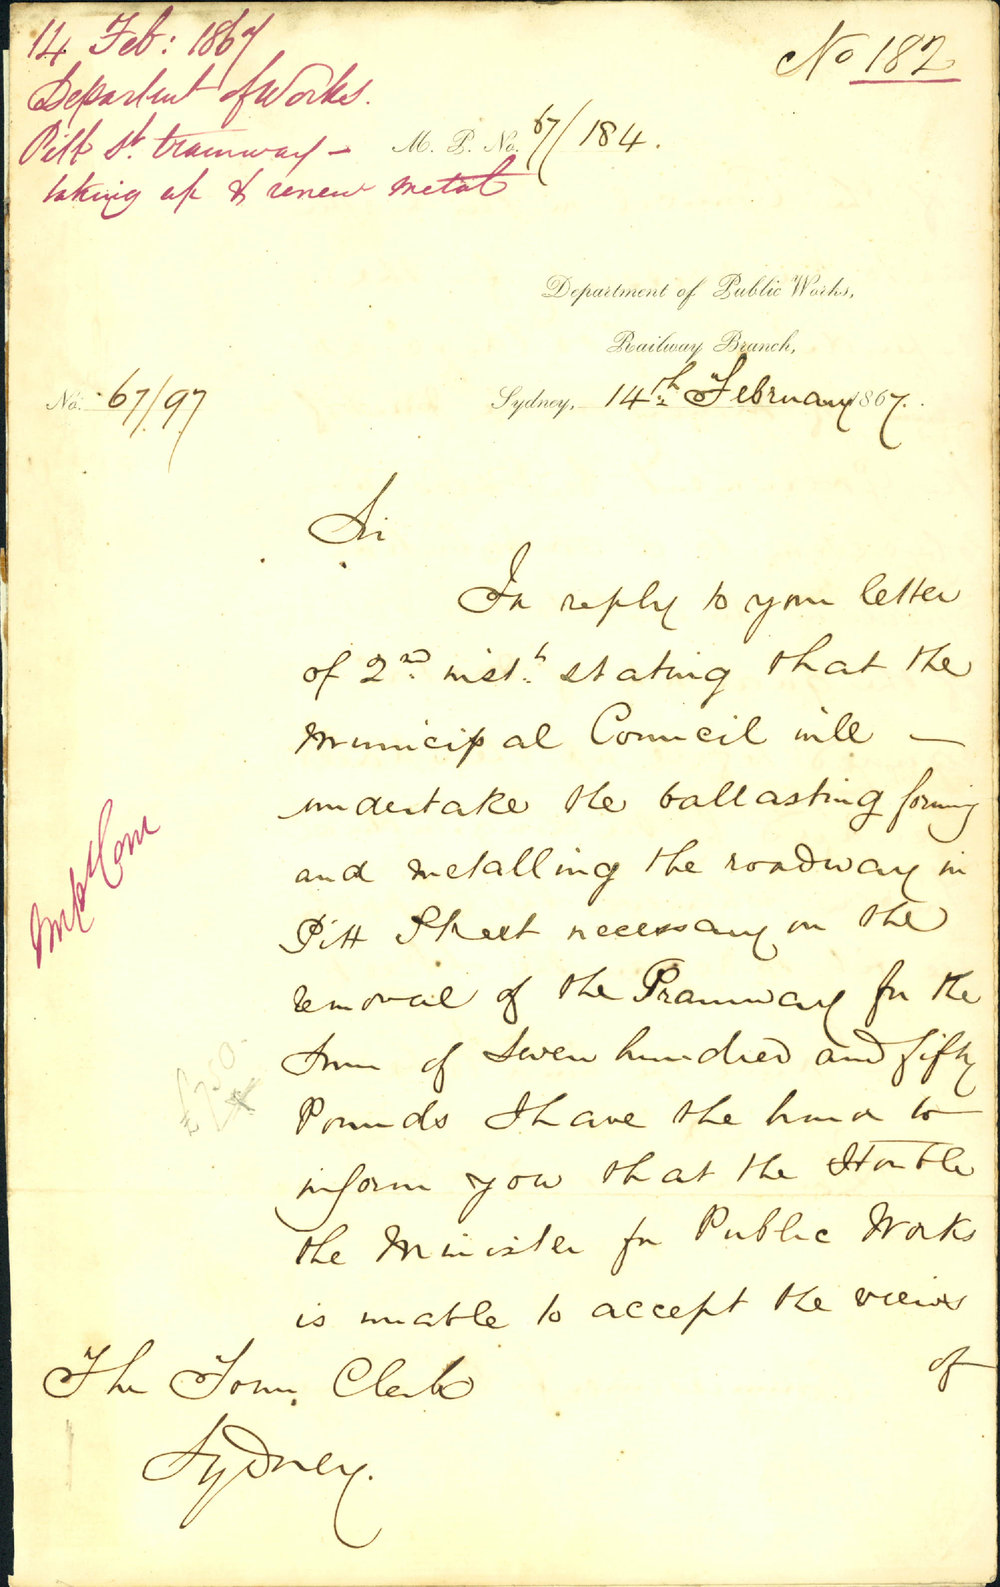 14 Feb: 1867
No 182
Department of Works.
Pitt St. tramway –
taking up & renew metal
M. P. No. 67/184.
Department of Public Works,
Railway Branch,
No. 67/97
Sydney, 14th February 1867.
Sir
In reply to your letter
of 2nd inst. stating that the
Municipal Council will —
undertake the ballasting forming
and metalling the roadway in
Pitt Street necessary on the
removal of the Tramway for the
Sum of Seven hundred and fifty
Pounds I have the honor to
inform you that the Honble
the Minister for Public Works
is unable to accept the views
of
Imp Com
£750.
The Town Clerk
Sydney.